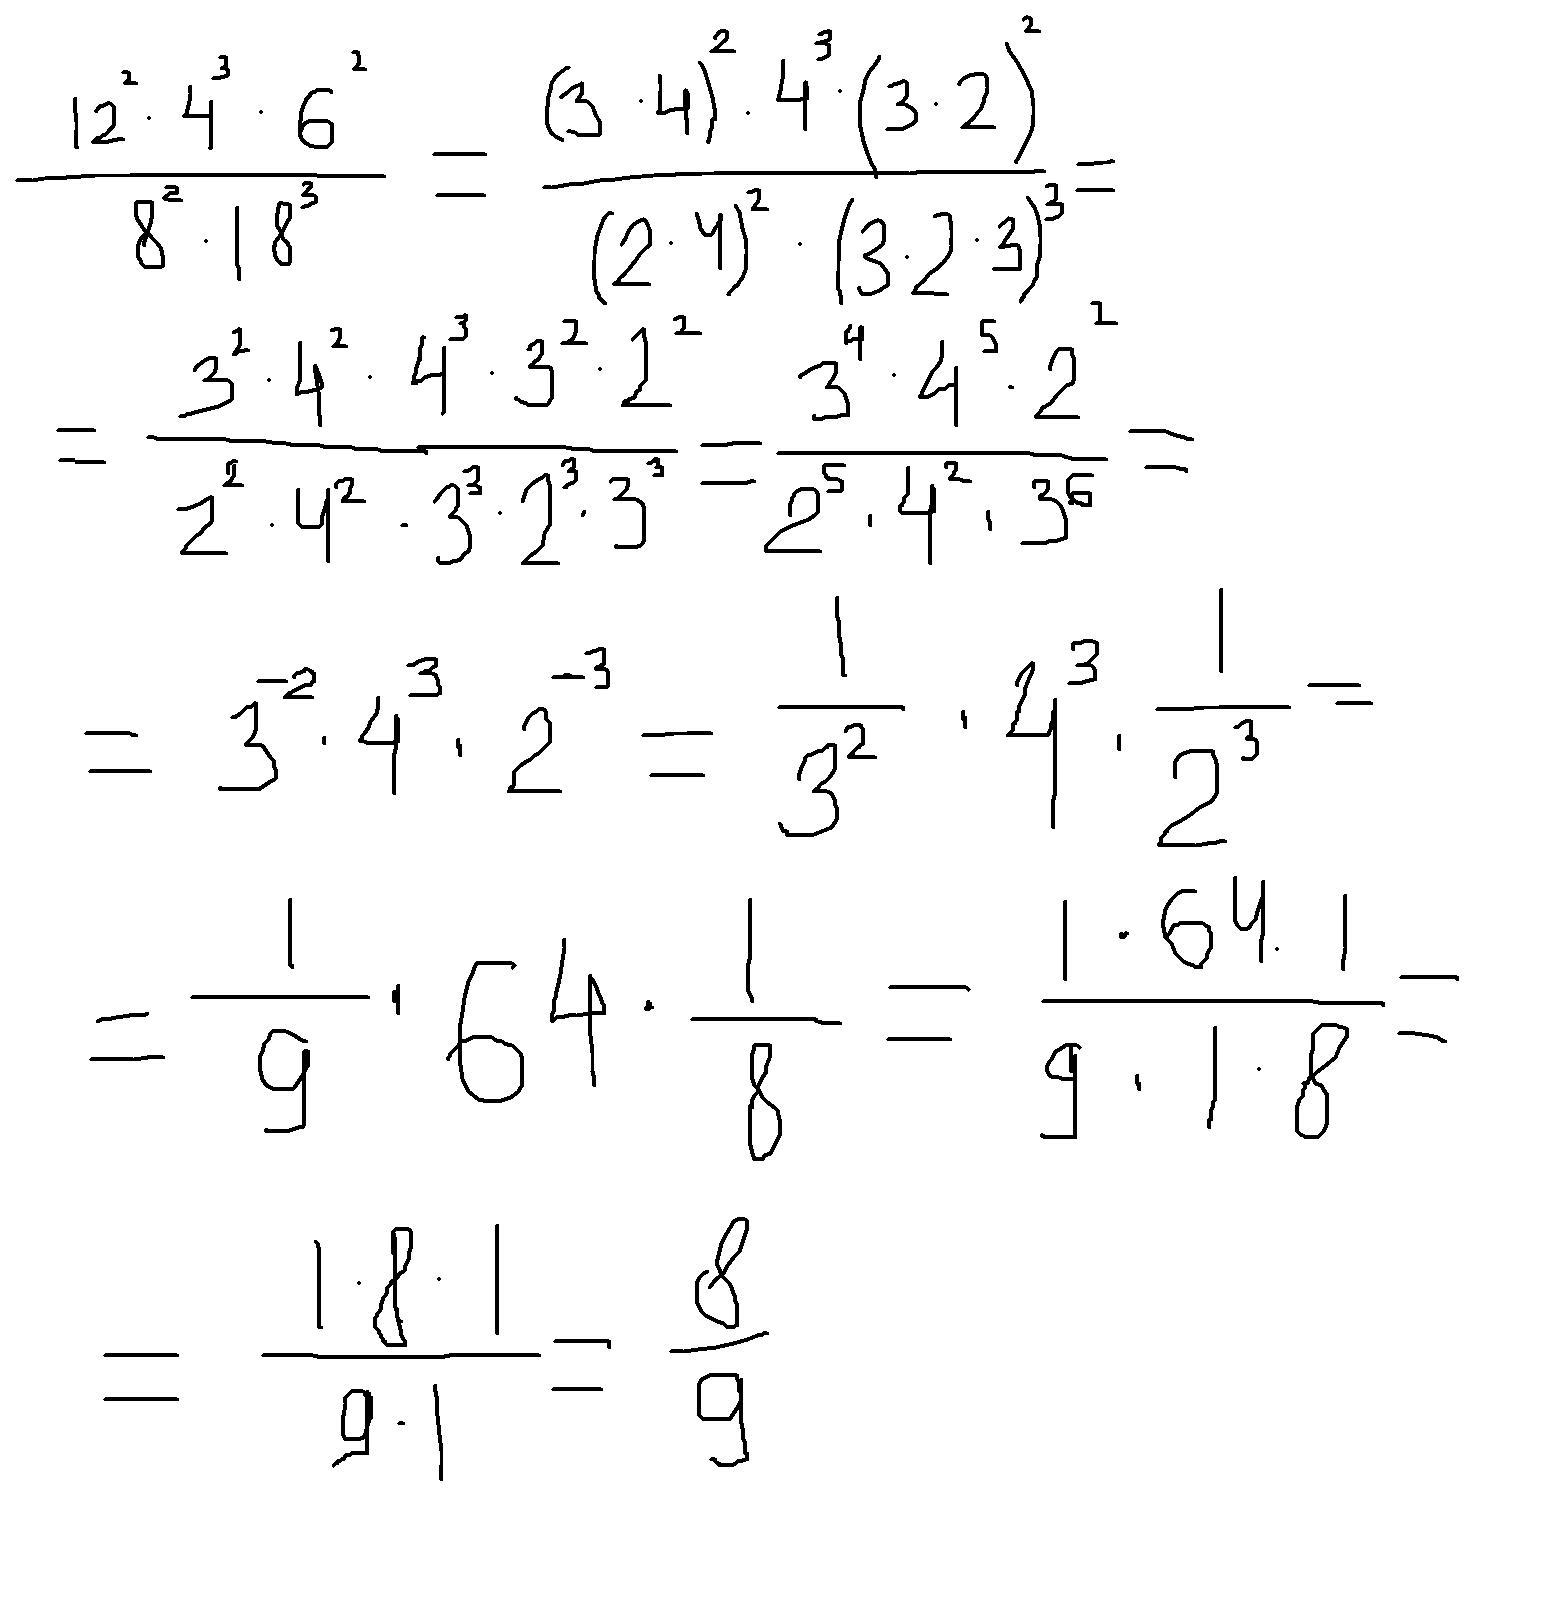 12² · 4³ · 6² / 8² · 18³ = (3 · 4)² · 4³ · (3 · 2)² / (2 · 4)² · (3 · 2 · 3)³ =
= 3² · 4² · 4³ · 3² · 2² / 2² · 4² · 3³ · 2³ · 3³ = 3⁴ · 4⁵ · 2² / 2⁵ · 4² · 3⁶ =
= 3⁻² · 4³ · 2⁻³ = 1 / 3² · 4³ · 1 / 2³ =
= 1 / 9 · 64 · 1 / 8 = 1 · 64 · 1 / 9 · 1 · 8 =
= 1 · 8 · 1 / 9 · 1 = 8 / 9